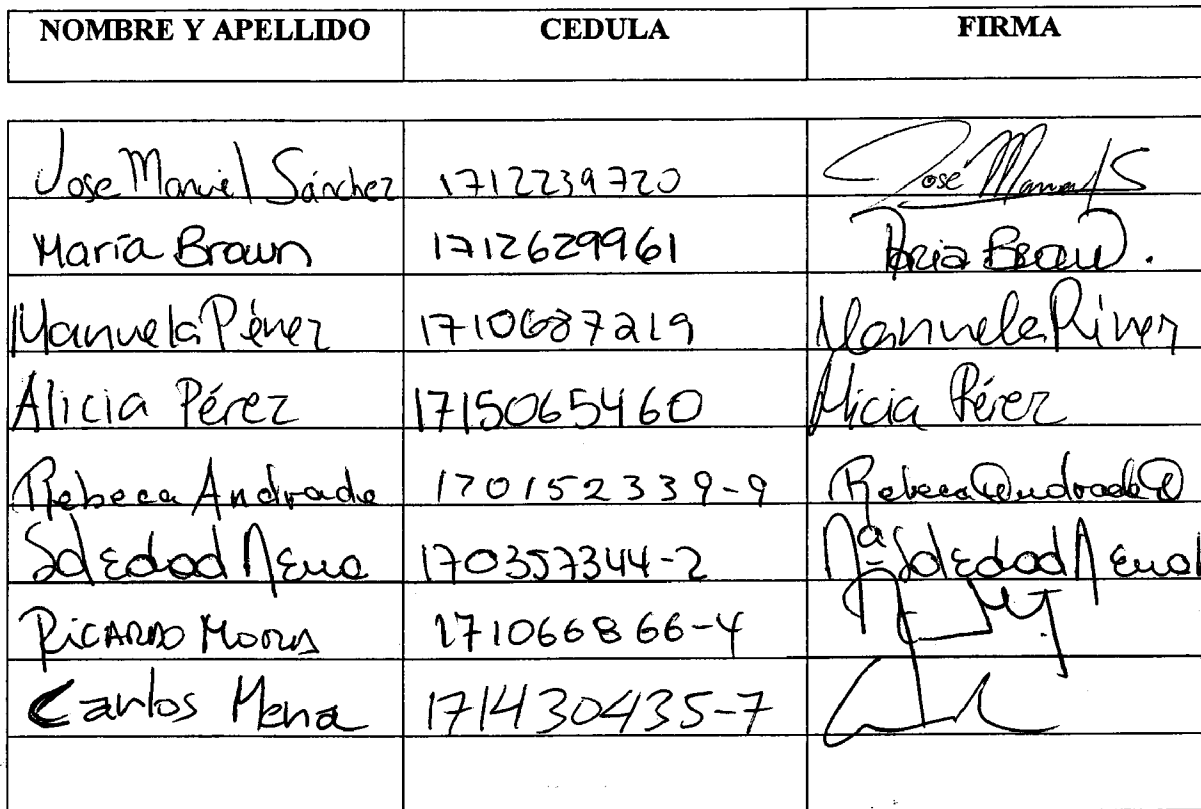 NOMBRE Y APELLIDO CEDULA FIRMA
Jose Manuel Sánchez 1712239720 José Manuel S
María Braun 1712629961 María Braun.
Manuela Pérez 1710687219 Manuela
Alicia Pérez 1715065460 Alicia Pérez
Rebeca Andrade 170152339-9 Rebeca Andrade
Soledad Mena 170357344-2 Mª Soledad Mena
RICARDO 171066866-4
Carlos Mena 171430435-7